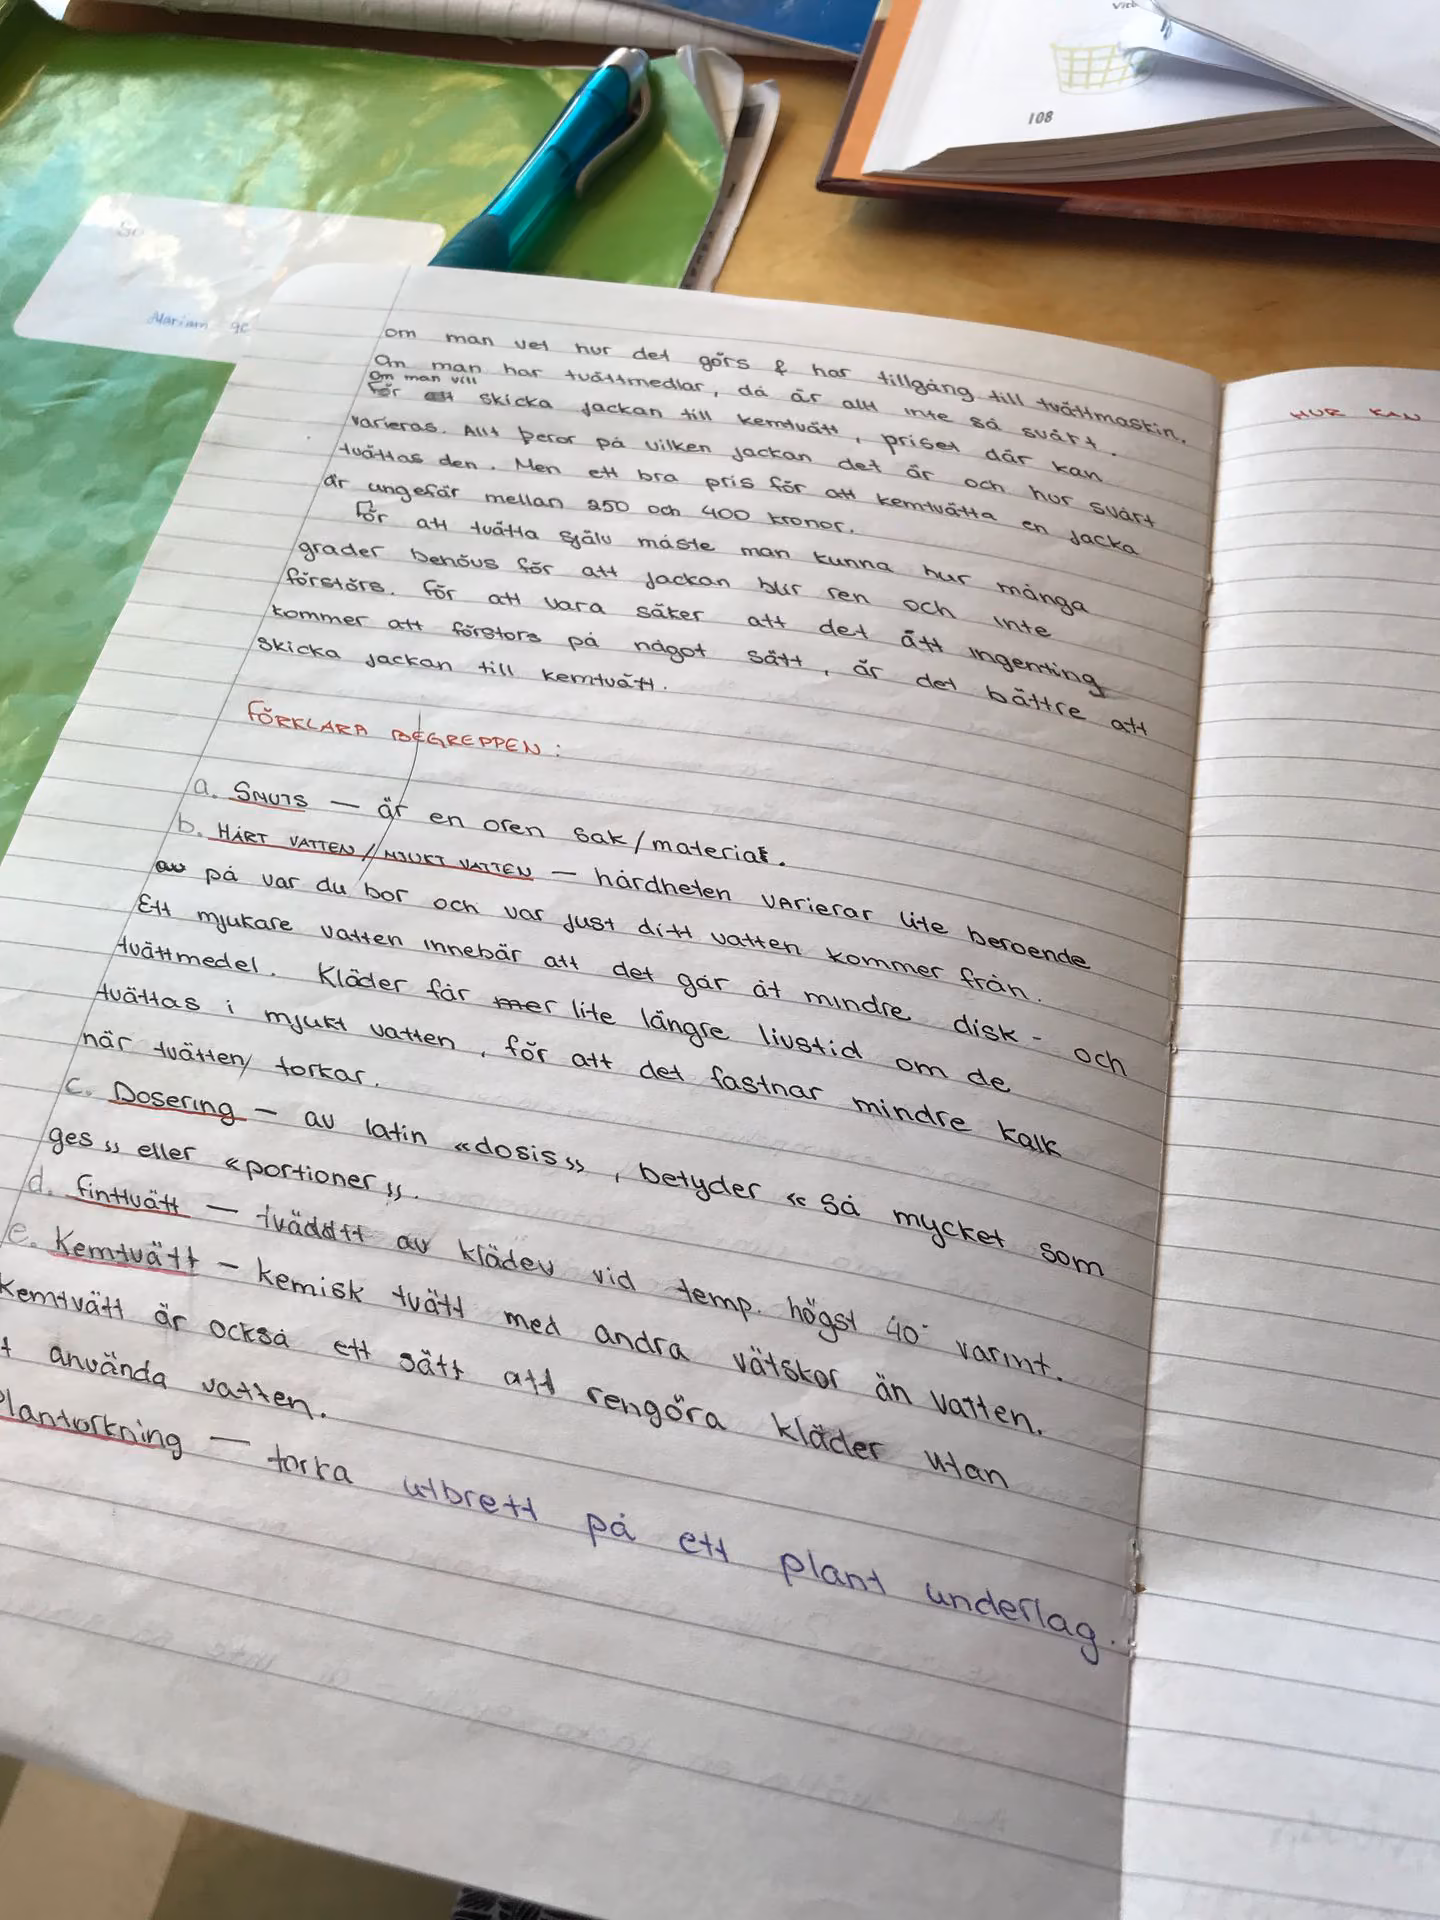 108
Mariam 9c
om man vet hur det görs & har tillgång till tvättmaskin.
Om man har tvättmedlar, då är allt inte så svårt.
Om man vill
För att skicka jackan till kemtvätt, priset där kan
varieras. Allt beror på vilken jackan det är och hur svårt
tvättas den. Men ett bra pris för att kemtvätta en jacka
är ungefär mellan 250 och 400 kronor.
För att tvätta själv måste man kunna hur många
grader behövs för att jackan blir ren och inte
förstörs. För att vara säker att det ätt ingenting
kommer att förstörs på något sätt, är det bättre att
skicka jackan till kemtvätt.
FÖRKLARA BEGREPPEN:
a. SMUTS — är en oren sak/material.
b. HÅRT VATTEN/MJUKT VATTEN — hårdheten varierar lite beroende
av på var du bor och var just ditt vatten kommer från.
Ett mjukare vatten innebär att det går åt mindre disk- och
tvättmedel. Kläder får mer lite längre livstid om de
tvättas i mjukt vatten, för att det fastnar mindre kalk
när tvätten torkar.
c. Dosering — av latin «dosis», betyder «så mycket som
ges» eller «portioner».
d. fintvätt — av kläder vid temp. högst 40° varmt.
e. Kemtvätt — kemisk tvätt med andra vätskor än vatten.
Kemtvätt är också ett sätt att rengöra kläder utan
t använda vatten.
Plantorkning — torka utbrett på ett plant underlag.
HUR KAN